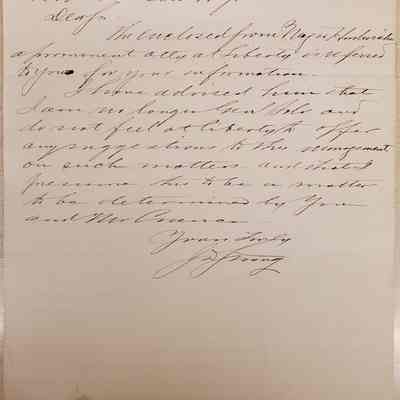 Dear Sir
The enclosed from
a prominent atty at Liberty is referred
to you for your information.
I have advised him that
I am no longer Genl Solr and
do not feel at liberty to offer
any suggestions to the management
on such matters and that I
presume this to be a matter
to be determined by you
and Mr
Yours truly
Strong